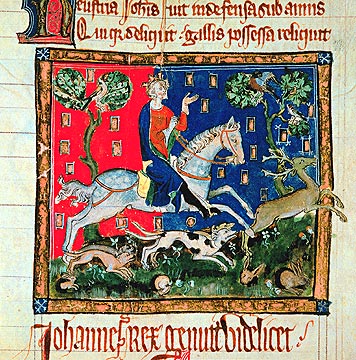 Neustria Joh'is ruit indefensa sub annis
Qui qr deliquit · gallis possessa reliquit
Johannes Rex genuit videlicet ·